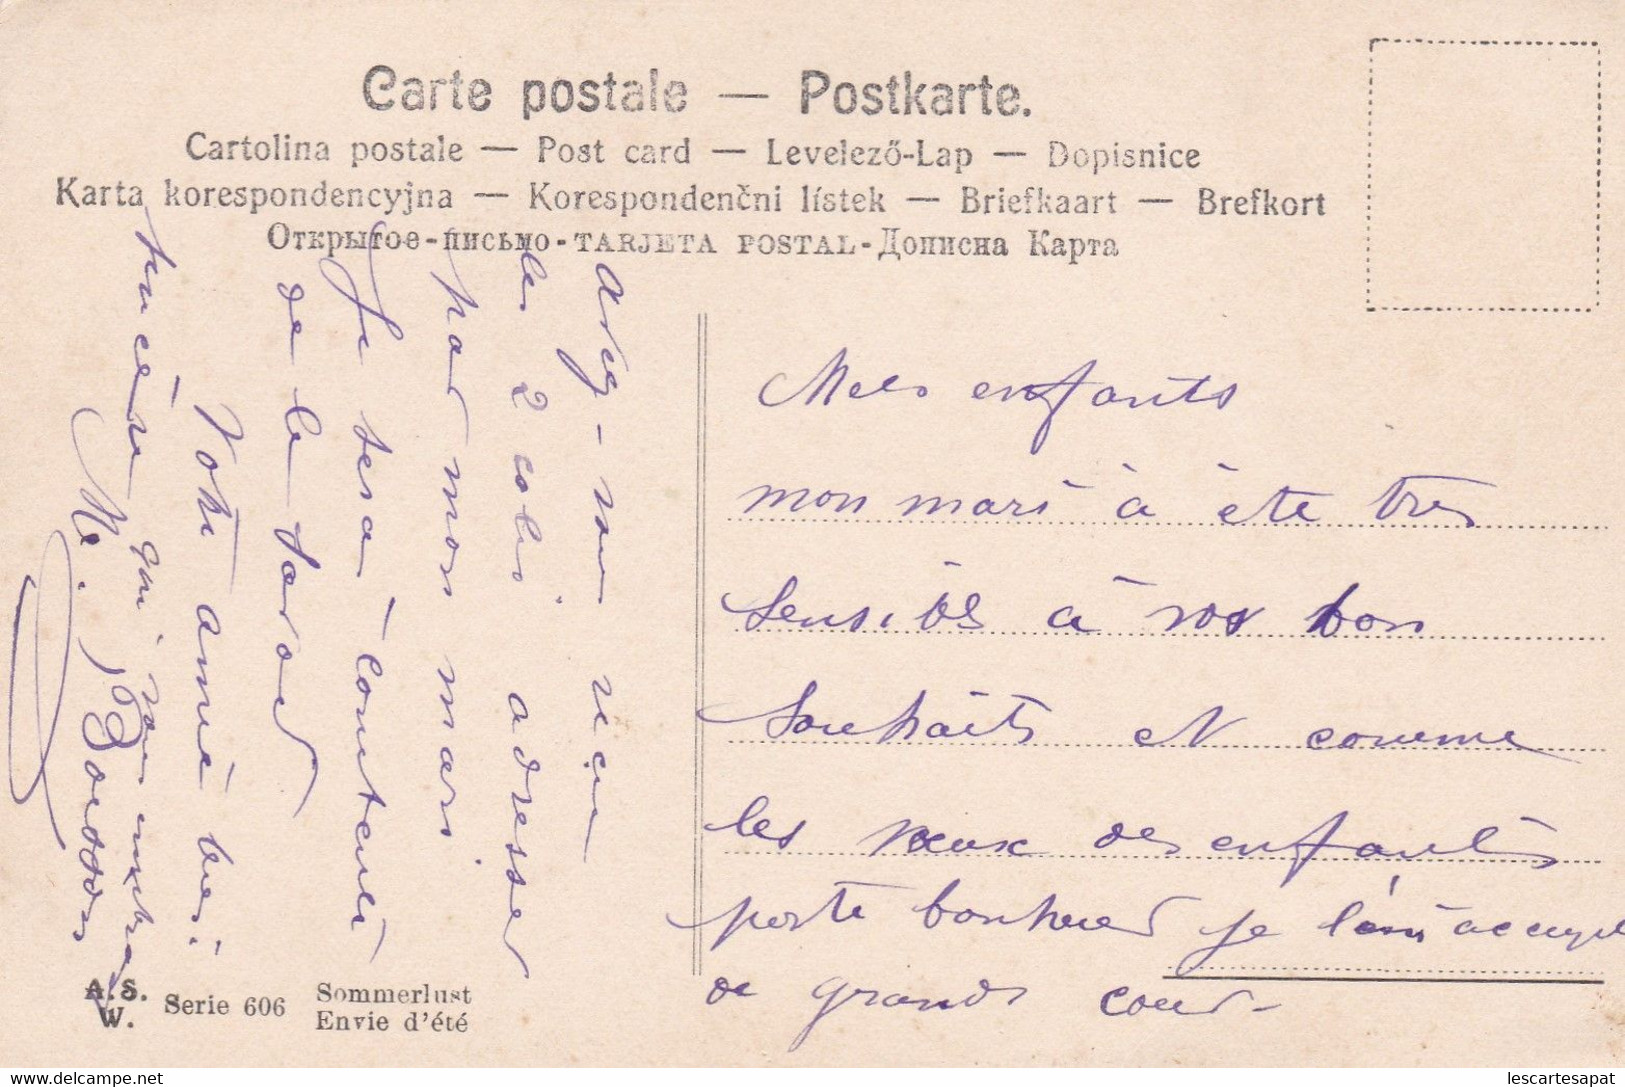 Carte postale — Postkarte.
Cartolina postale — Post card — Levelező-Lap — Dopisnice
Karta korespondencyjna — Korespondenčni lístek — Briefkaart — Brefkort
Открытое-письмо-TARJETA POSTAL-Дописна Карта
Mes enfants
mon mari à ète tres
sensible à vos bon
souhaits et comme
les vœux des enfants
porte bonheur je accepte
de grand cœur
avez-vous reçu
les 2 colis adresser
par mon mari
Je serai content
de le savoir
Votre amie bien
sincère
qui vous embrasse
A.S.
W.
Serie 606
Sommerlust
Envie d'été
www.delcampe.net
lescartesapat